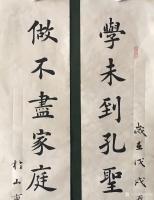 學未到孔聖
歲在戊戌
做不盡家庭